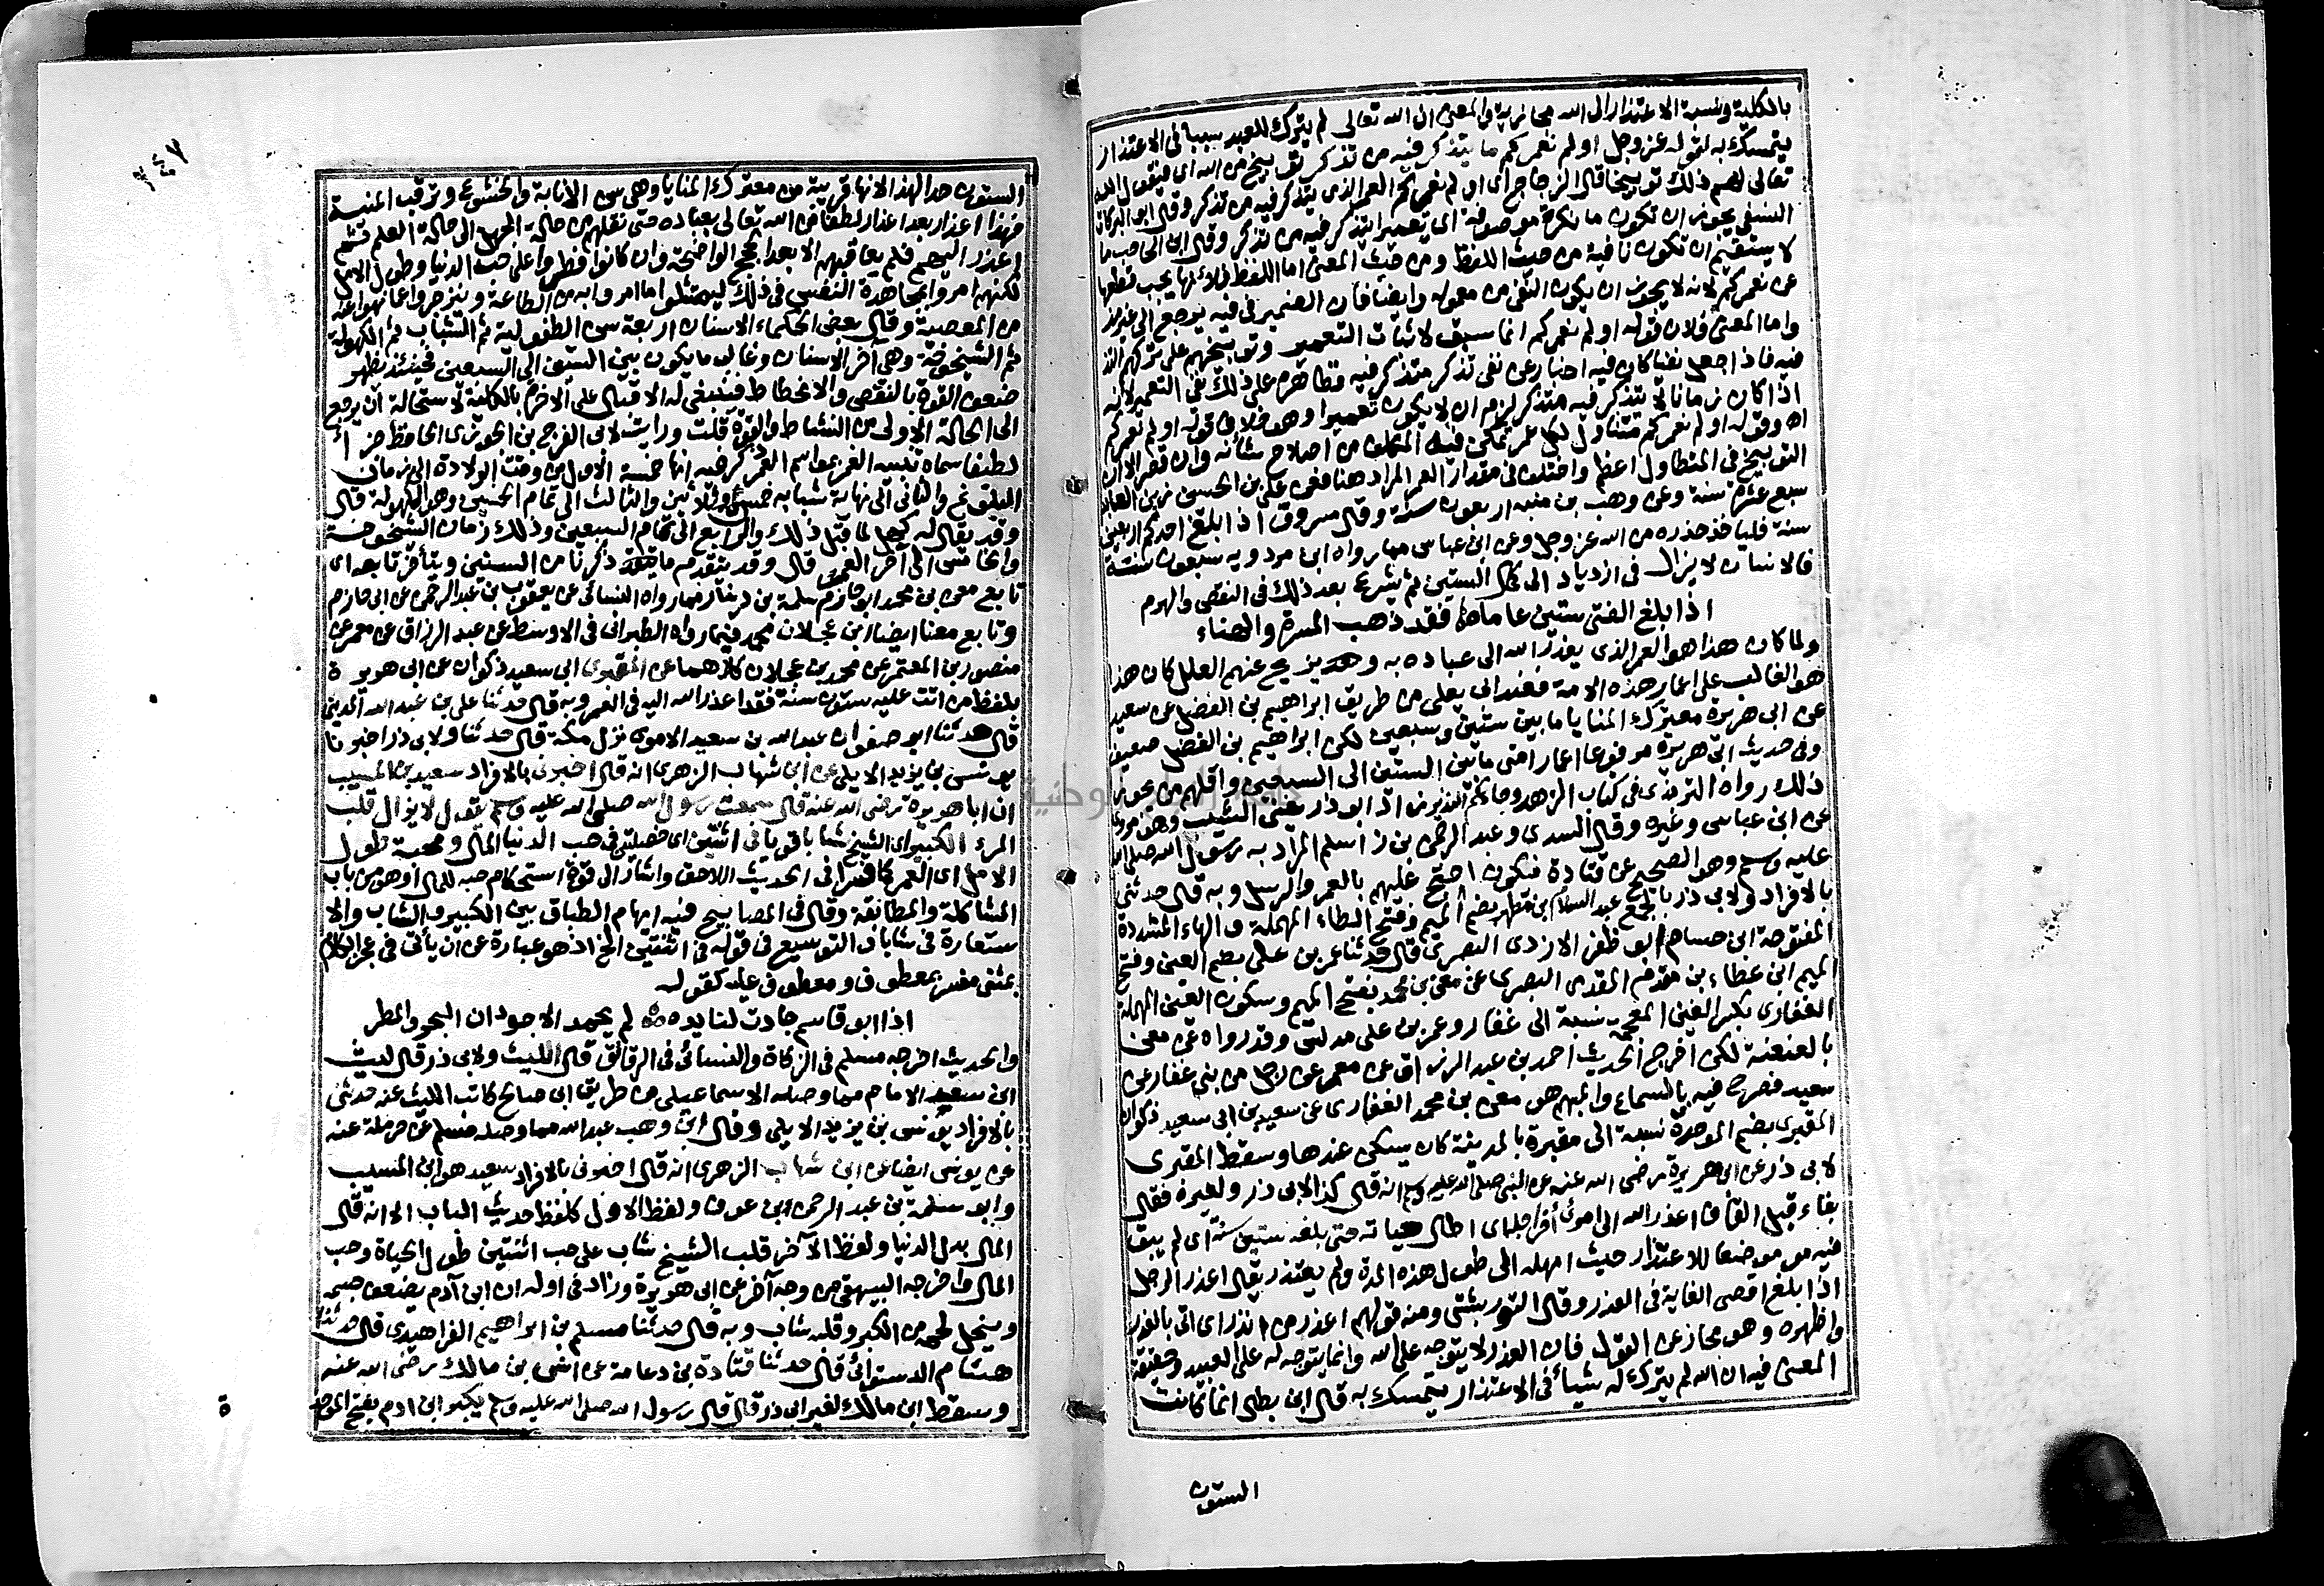 بالكلية ونسبة الاعتذار الى الله مجازية والمعنى ان الله تعالى لم يترك للعبد سببا في الاعتذار
يتمسك به لقوله عز وجل اولم نعمركم ما يتذكر فيه من تذكر توبيخ من الله اى فيقول الله
تعالى لهم ذلك توبيخا قال الزجاج اى اولم نعمركم العمر الذى يتذكر فيه من تذكر وقال ابو البركات
النسفى يجوز ان تكون ما نكرة موصوفة اى تعميرا يتذكر فيه من تذكر وقال ابن الحاجب ما
لا يستقيم ان تكون نافية من حيث اللفظ ومن حيث المعنى اما اللفظ فلانها يجب قطعها
عن نعمركم لانه لا يجوز ان يكون النفى من معموله وايضا فان الضمير في فيه يرجع الى غير مذكور
واما المعنى فلان قوله اولم نعمركم انما سيق لاثبات التعمير وتوبيخهم على تركهم التذكر
فيه فاذا جعل نفيا كان فيه اخبار عن نفى تذكر متذكر فيه فظاهره على ذلك نفى التعمير لانه
اذا كان زمانا لا يتذكر فيه متذكر لزم ان لا يكون تعميرا وهو خلاف قوله اولم نعمركم
اه وقوله اولم نعمركم متناول لكل عمر تمكن فيه المكلف من اصلاح شأنه وان قصر الا ان
التوبيخ فى المتطاول اعظم واختلف فى مقدار العمر المراد هنا فعن على بن الحسين زين العابدين
سبع عشرة سنة وعن وهب بن منبه اربعون سنة وقال مسروق اذا بلغ احدكم اربعين
سنة فلياخذ حذره من الله عز وجل وعن ابن عباس مما رواه ابن مردويه سبعون سنة
فالانسان لا يزال فى ازدياد الى كمال الستين ثم يشرع بعد ذلك فى النقص والهرم
اذا بلغ الفتى ستين عاما فقد ذهب المسرة والهناء
ولما كان هذا هو العمر الذى يعذر الله الى عباده به ويزيح عنهم العلل كان هذا
هو الغالب على اعمار هذه الامة فعند ابى يعلى من طريق ابراهيم بن الفضل عن سعيد
عن ابى هريرة معترك المنايا ما بين ستين وسبعين لكن ابراهيم بن الفضل ضعيف
وفى حديث ابى هريرة مرفوعا اعمار امتى ما بين الستين الى السبعين واقلهم من يجوز
ذلك رواه الترمذى فى كتاب الزهد وجاءكم النذير زاد ابو ذر يعنى الشيب وهو مروى
عن ابن عباس وغيره وقال السدى وعبد الرحمن بن زيد اسلم المراد به رسول الله صلى الله
عليه وسلم وهو الصحيح عن قتادة فيكون احتج عليهم بالعمر والرسل وبه قال حدثنى
بالافراد ولابى ذر بالجمع عبد السلام بن مطهر بضم الميم وفتح الطاء المهملة والهاء المشددة
المفتوحة ابن حسام ابو ظفر الازدى البصرى قال حدثنا عمر بن على بضم العين وفتح
الميم ابن عطاء بن مقدم المقدمى البصرى عن معن بن محمد بفتح الميم وسكون العين المهملة
الغفارى بكسر الغين المعجمة نسبة الى غفار وعمر بن على مدلس وقد رواه عن معن
بالعنعنة لكن اخرج الحديث احمد بن عبد الرزاق عن معمر عن رجل من بنى غفار عن
سعيد فصرح فيه بالسماع والمبهم هو معن بن محمد الغفارى عن سعيد بن ابى سعيد ذكوان
المقبرى بضم الموحدة نسبة الى مقبرة بالمدينة كان يسكن عندها وسقط المقبرى
لابى ذر عن ابى هريرة رضى الله عنه عن النبى صلى الله عليه وسلم انه قال كذا لابى ذر ولغيره فقال
بفاء قبل القاف اعذر الله الى امرئ اخر اجله اى اطال حياته حتى بلغه ستين سنة اى لم يبق
فيه موضعا للاعتذار حيث امهله الى طول هذه المدة ولم يعتذر يقال اعذر الرجل
اذا بلغ اقصى الغاية فى العذر وقال التوربشتى ومنه قولهم اعذر من انذر اى اتى بالعذر
واظهره وهو مجاز عن القول فان العذر لا يتوجه على الله وانما يتوجه له على العبيد وحقيقة
المعنى فيه ان الله لم يترك له شيأ فى الاعتذار يتمسك به قال ابن بطال انما كانت
الستون
٣٤٧
الستون حدا لهذا لانها قريبة من معترك المنايا وهى سن الانابة والخشوع وترقب المنية
فهذا اعذار بعد اعذار لطفا من الله تعالى بعباده حتى نقلهم من حالة الجهل الى حالة العلم ثم
اعذر اليهم فلم يعاقبهم الا بعد الحجج الواضحة وان كانوا فطروا على حب الدنيا وطول الامل
لكنهم امروا بمجاهدة النفس فى ذلك ليمتثلوا ما امروا به من الطاعة وينزجروا عما نهوا عنه
من المعصية وقال بعض الحكماء الاسنان اربعة سن الطفولية ثم الشباب ثم الكهولة
ثم الشيخوخة وهى آخر الاسنان وغالب ما يكون بين الستين الى السبعين فحينئذ يظهر
ضعف القوة بالنقص والانحطاط فينبغى له الاقبال على الاخرة بالكلية لاستحالة ان يرجع
الى الحالة الاولى من النشاط والقوة قلت ورايت لابى الفرج بن الجوزى الحافظ جزأ
لطيفا سماه تنبيه الغمر على مواسم العمر ذكر فيه انها خمسة الاول من وقت الولادة الى زمان
البلوغ والثانى الى نهاية شبابه خمس وثلاثين والثالث الى تمام الخمسين وهو الكهولة قال
وقد يقال له كهل لما قبل ذلك والرابع الى تمام السبعين وذلك زمان الشيخوخة
والخامس الى آخر العمر قال وقد يتقدم ما ذكرنا من السنين ويتأخر تابعه اى
تابع معن بن محمد ابو حازم سلمة بن دينار مما رواه النسائى عن يعقوب بن عبد الرحمن عن ابى حازم
وتابع معنا ايضا ابن عجلان محمد فيما رواه الطبرانى فى الاوسط عن عبد الرزاق عن معمر عن
منصور بن المعتمر عن محمد بن عجلان كلاهما عن المقبرى ابى سعيد ذكوان عن ابى هريرة
بلفظ من اتت عليه ستون سنة فقد اعذر الله اليه فى العمر وبه قال حدثنا على بن عبد الله المدينى
قال حدثنا ابو صفوان عبد الله بن سعيد الاموى نزل مكة قال حدثنا ولابى ذر اخبرنا
يونس بن يزيد الايلى عن ابن شهاب الزهرى انه قال اخبرنى بالافراد سعيد بن المسيب
ان ابا هريرة رضى الله عنه قال سمعت رسول الله صلى الله عليه وسلم يقول لا يزال قلب
المرء الكبير اى الشيخ شابا قويا فى اثنتين اى خصلتين فى حب الدنيا المال ومحبة طول
الامل اى العمر كما فسر فى الحديث اللاحق واشار الى قوة استحكام حبه للمال او هو من باب
المشاكلة والمطابقة وقال فى المصابيح فيه ايهام الطباق بين الكبير والشاب والا
ستعارة فى شابا والتوسيع فى قوله فى اثنتين الخ اذ هو عبارة عن ان يأتى فى عجز الكلام
بمثنى مفسر بمعطوف ومعطوف عليه كقوله
اذا ابو قاسم جادت لنا يده لم يحمد الاجودان البحر والمطر
والحديث اخرجه مسلم فى الزكاة والنسائى فى الرقائق قال الليث ولابى ذر قال ليث
ابن سعيد الامام مما وصله الاسماعيلى من طريق ابى صالح كاتب الليث عنه حدثنى
بالافراد يونس بن يزيد الايلى وقال ابن وهب عبد الله مما وصله مسلم عن حرملة عنه
عن يونس ايضا عن ابن شهاب الزهرى انه قال اخبرنى بالافراد سعيد هو ابن المسيب
وابو سلمة بن عبد الرحمن ابن عوف ولفظ الاول كلفظ حديث الباب الا انه قال
المال بدل الدنيا ولفظ الآخر قلب الشيخ شاب على حب اثنتين طول الحياة وحب
المال واخرجه البيهقى من وجه آخر عن ابى هريرة وزاد فى اوله ان ابن آدم يضعف جسمه
وينحل لحمه من الكبر وقلبه شاب وبه قال حدثنا مسلم بن ابراهيم الفراهيدى قال حدثنا
هشام الدستوائى قال حدثنا قتادة بن دعامة عن انس بن مالك رضى الله عنه
وسقط ابن مالك لغير ابى ذر قال قال رسول الله صلى الله عليه وسلم يكبر ابن ادم بفتح الموحد
ة